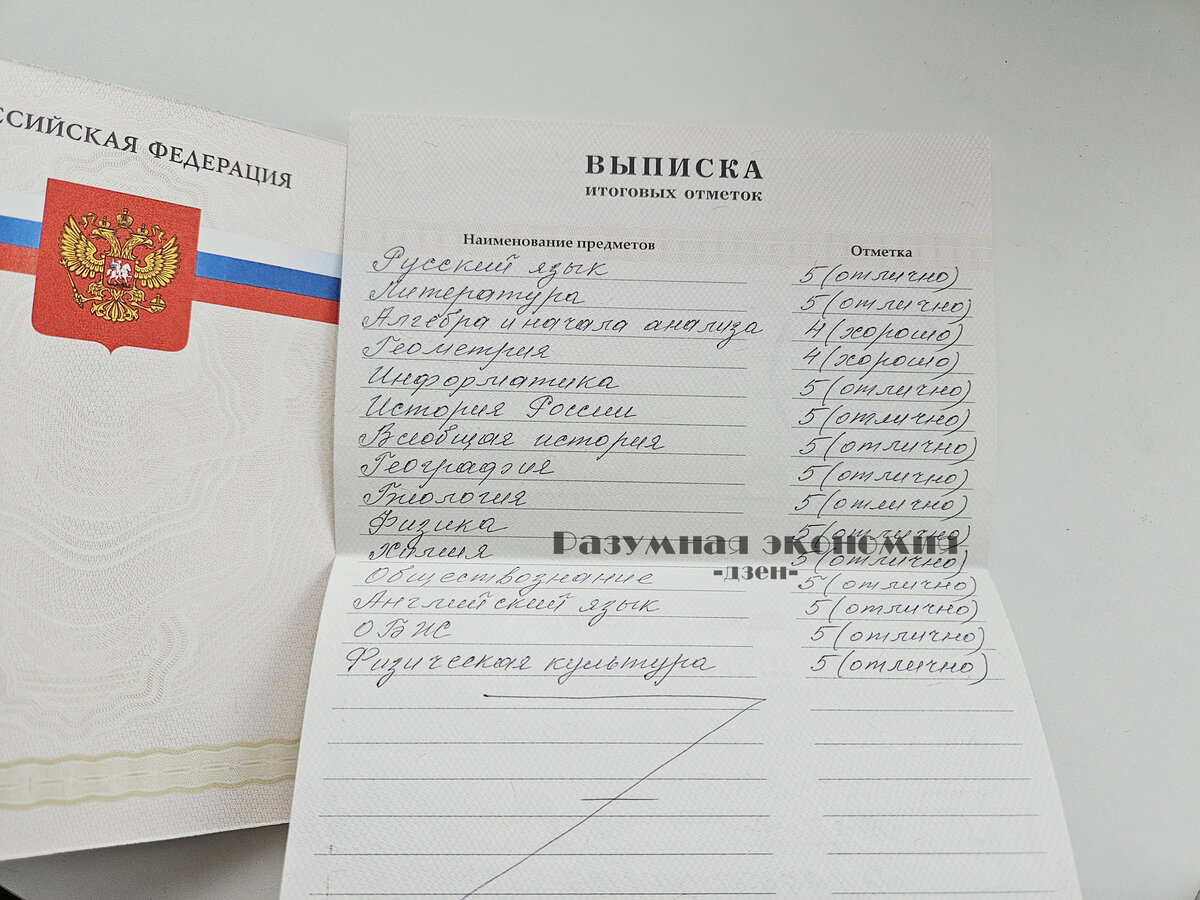 ССИЙСКАЯ ФЕДЕРАЦИЯ
ВЫПИСКА
итоговых отметок
Наименование предметов Отметка
Русский язык 5 (отлично)
Литература 5 (отлично)
Алгебра и начала анализа 4 (хорошо)
Геометрия 4 (хорошо)
Информатика 5 (отлично)
История России 5 (отлично)
Всеобщая история 5 (отлично)
География 5 (отлично)
Биология 5 (отлично)
Физика 5 (отлично)
Химия 5 (отлично)
Обществознание 5 (отлично)
Английский язык 5 (отлично)
ОБЖ 5 (отлично)
Физическая культура 5 (отлично)
Разумная экономия
-дзен-